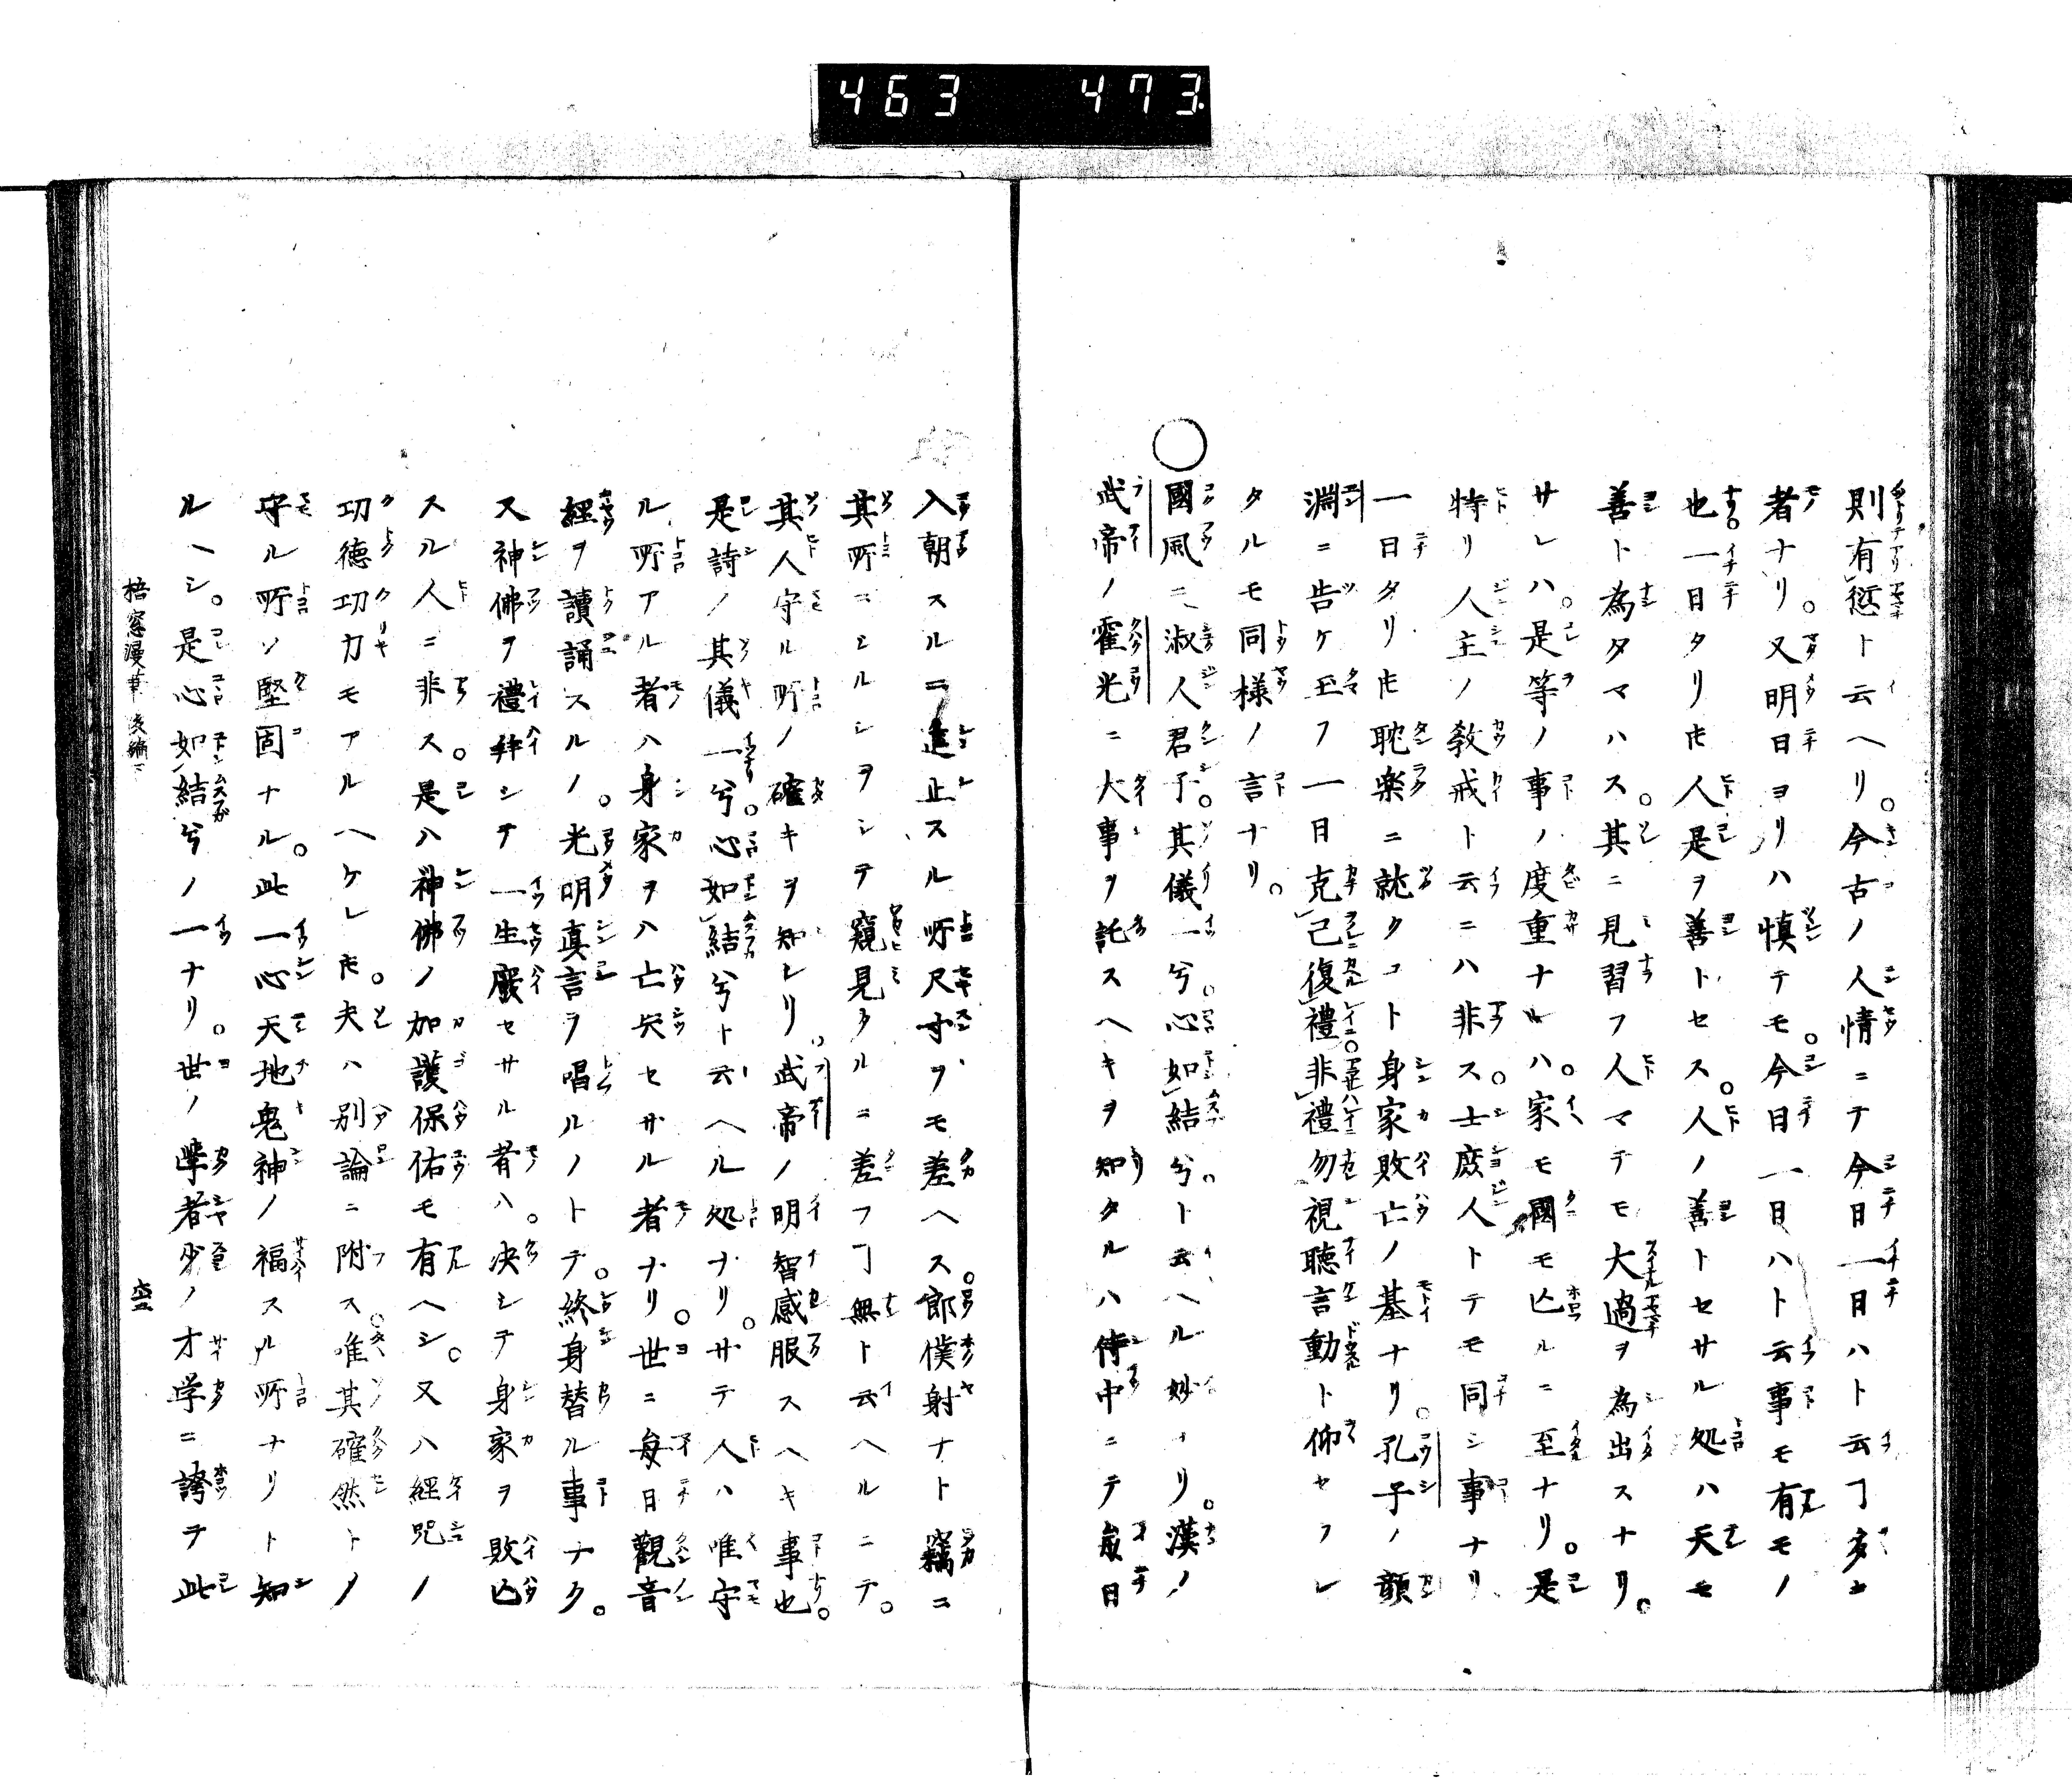 463 473
則有愆ト云ヘリ。今古ノ人情ニテ今日一日ハト云ヿ多キ
者ナリ。又明日ヨリハ慎テモ。今日一日ハト云事モ有モノ
也。一日タリ𪜈人是ヲ善トセス。人ノ善トセサル処ハ天モ
善ト為タマハス。其ニ見習フ人マテモ大過ヲ為出スナリ。
サレハ。是等ノ事ノ度重ナレハ。家モ國モ亾ルニ至ナリ。是
特リ人主ノ敎戒ト云ニハ非ス。士庶人トテモ同シ事ナリ
一日タリ𪜈耽楽ニ就クコト身家敗亡ノ基ナリ。孔子ノ顔
淵ニ告ケ玉フ一日克己復禮。非禮勿視聴言動ト仰セラレ
タルモ同様ノ言ナリ。
○國風ニ淑人君子。其儀一兮。心如結兮。ト云ヘル妙ナリ。漢ノ
武帝ノ霍光ニ大事ヲ託スヘキヲ知タルハ侍中ニテ毎日
入朝スルニ進止スル所尺寸ヲモ差ヘス。郎僕射ナト竊ニ
其所ニシルシヲシテ窺見タルニ差フヿ無ト云ヘルニテ。
其人守ル所ノ確キヲ知レリ。武帝ノ明智感服スヘキ事也。
是詩ノ其儀一兮。心如結兮ト云ヘル処ナリ。サテ人ハ唯守
ル所アル者ハ身家ヲハ亡矢セサル者ナリ。世ニ毎日觀音
經ヲ讀誦スルノ。光明真言ヲ唱ルノトテ。終身替ル事ナク。
又神佛ヲ禮拜シテ一生廢セサル者ハ。决シテ身家ヲ敗亾
スル人ニ非ス。是ハ神佛ノ加護保佑モ有ヘシ。又ハ經咒ノ
功徳功力モアルヘケレ𪜈。夫ハ別論ニ附ス。唯其確然トノ
守ル所ソ堅固ナル。此一心天地鬼神ノ福スル所ナリト知
ルヘシ。是心如結兮ノ一ナリ。世ノ學者少ノ才学ニ誇テ此
梧窓漫筆 後編下